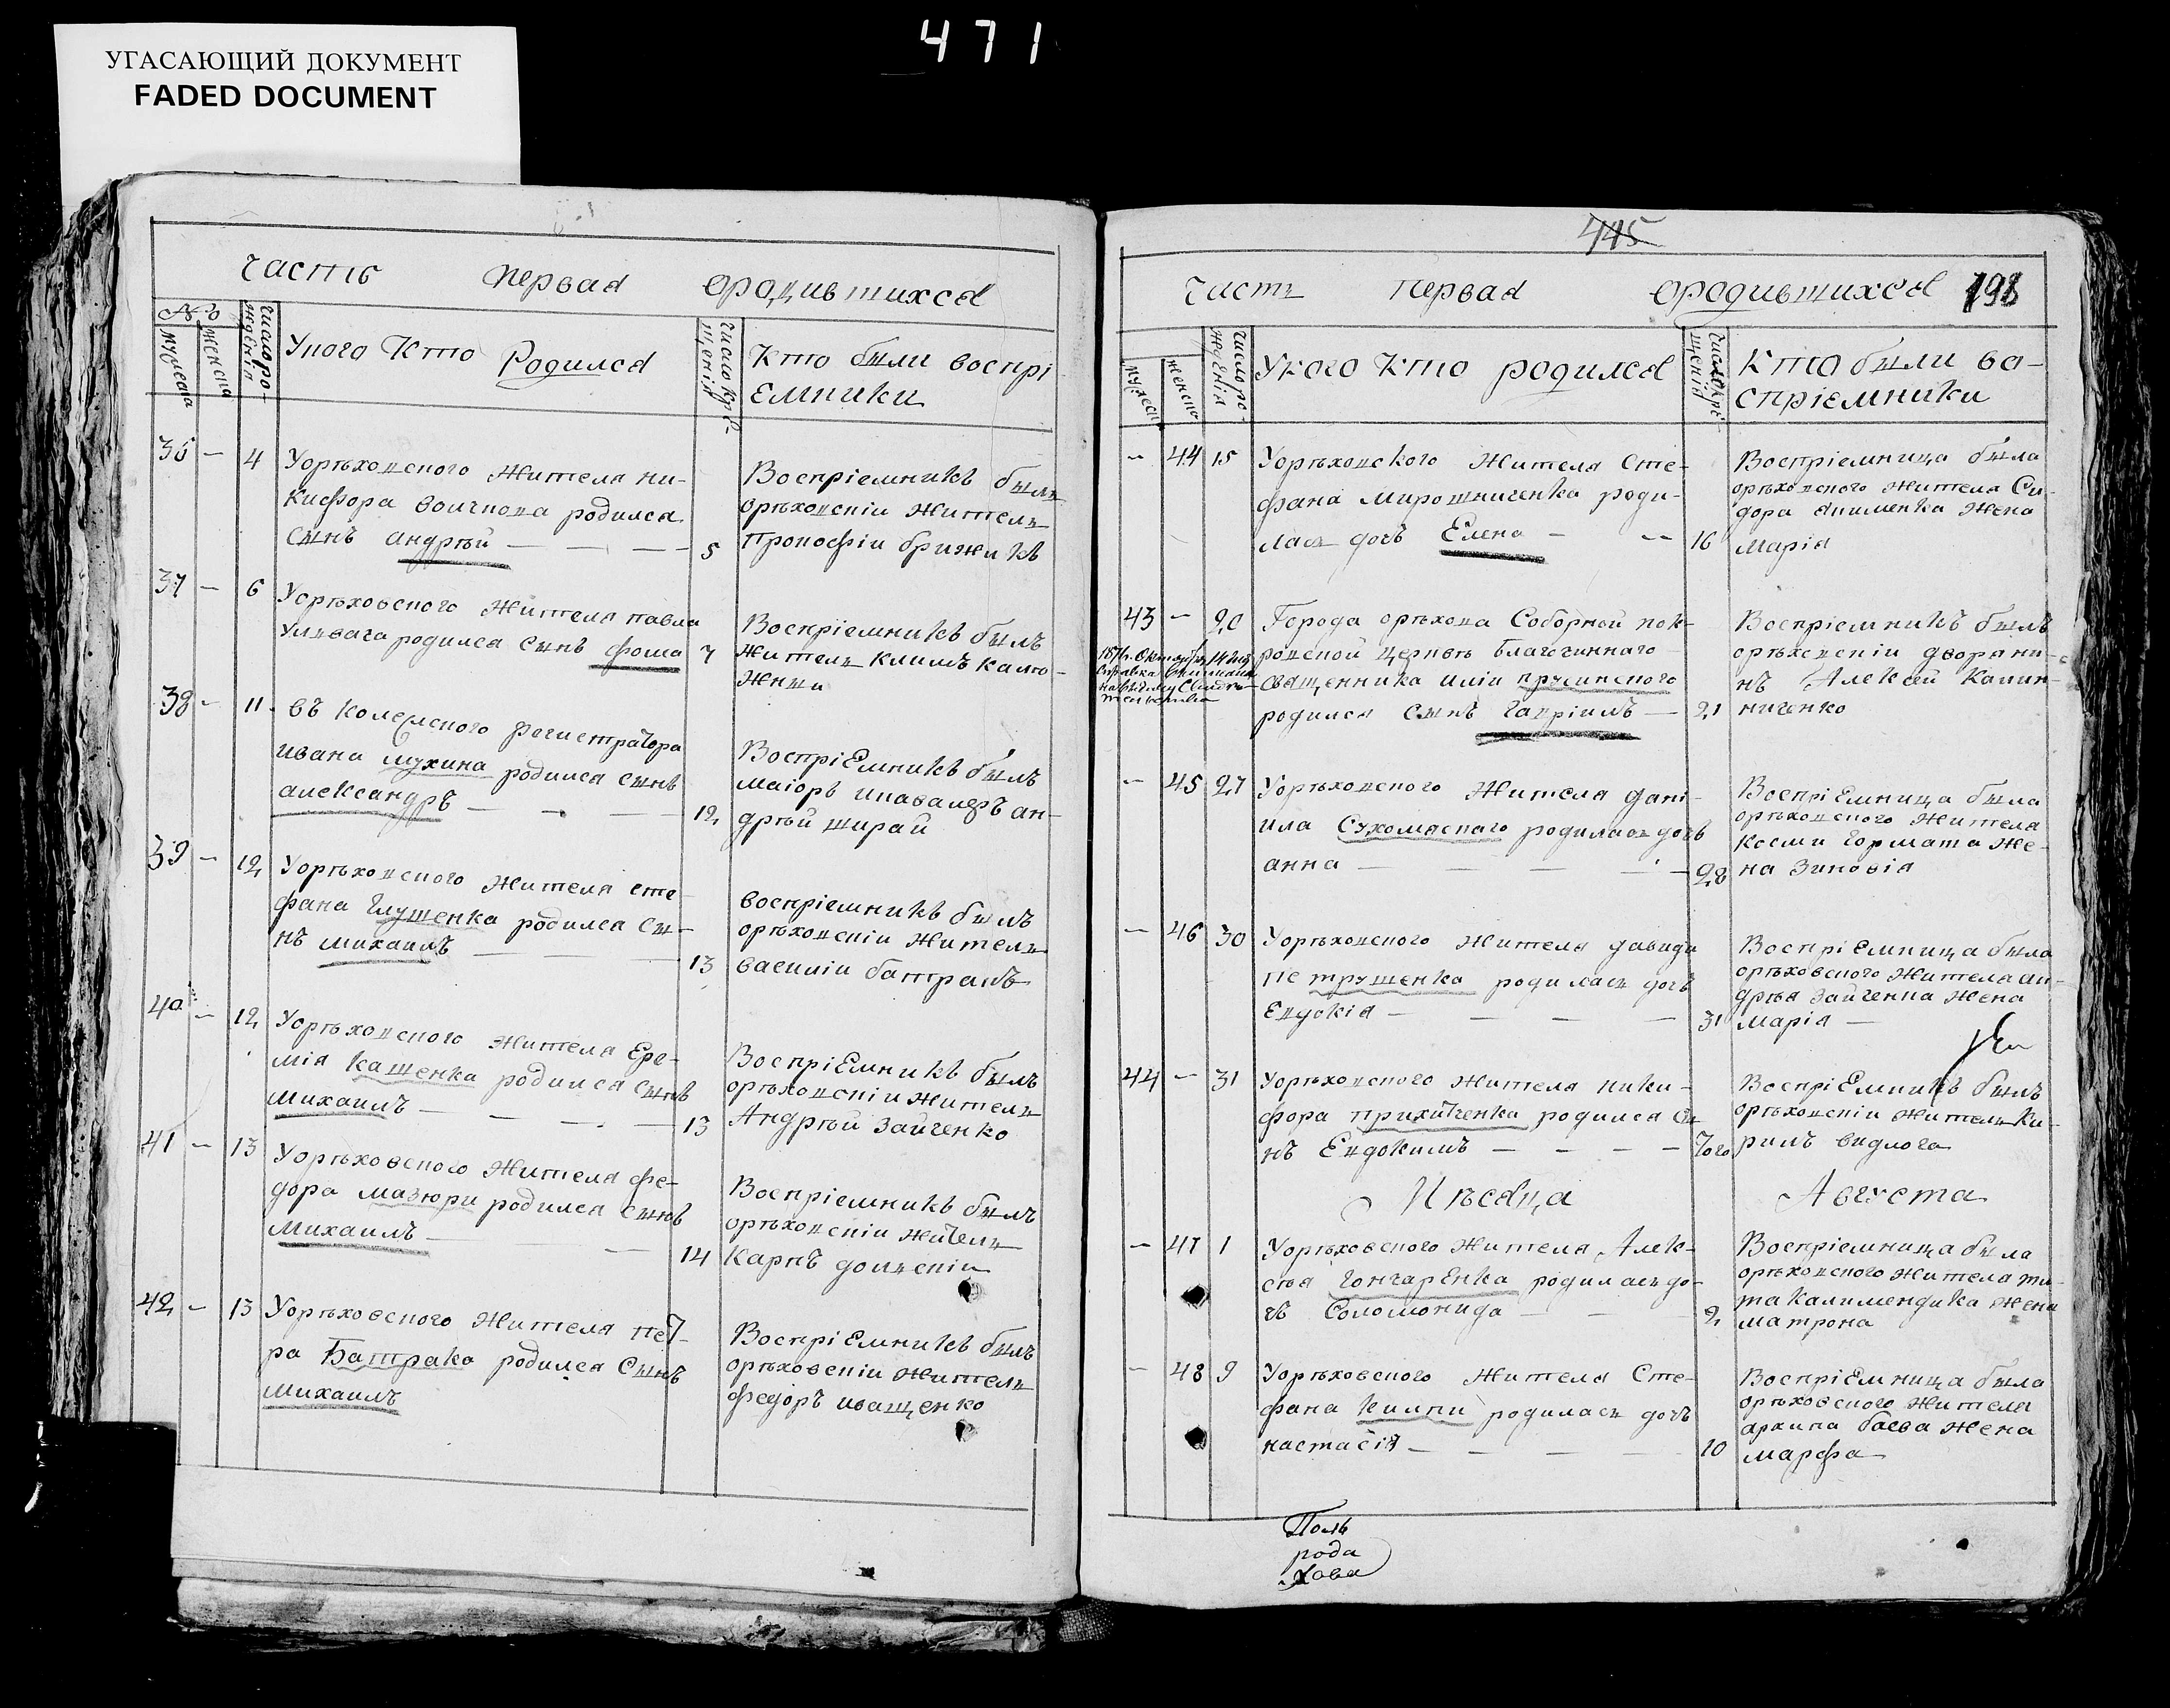 471
УГАСАЮЩИЙ ДОКУМЕНТ
FADED DOCUMENT
часть первая ородившихся
№
мужеска
женска
число рождения
Уного Кто Родился
число крещенія
Кто были воспрі
Емники
36 — 4 Уорѣховсного Жителя ни-
Кифора волчнова родился
Сынъ андрѣй — — — 5
Воспріемникъ былъ
орѣховсніи Житель
пронофіи брижикъ
37 — 6 Уорѣховсного Жителя павла
родился Сынъ фома 7
Воспріемникъ былъ
Житель климъ калю-
жный
38 — 11 въ Колежсного регистратора
ивана мухина родился Сынъ
александръ — — — 12
ВоспріЕмникъ былъ
маіоръ инавалеръ ан-
дрѣй ширай
39 — 12 Уорѣховсного жителя сте-
фана Глущенка родился Сы-
нъ михаилъ — — 13
воспріемникъ былъ
орѣховсніи Житель
василіи батракъ
40 — 12 Уорѣховсного жителя Ере-
мія Кащенка родился Сынъ
михаилъ — — — 13
ВоспріЕмникъ былъ
орѣховсніи Житель
Андрѣй Зайченко
41 — 13 Уорѣховсного Жителя фе-
дора мазюри родился Сынъ
михаилъ — — 14
Воспріемникъ былъ
орѣховсніи жи͡тель
Карпъ долженіи
42 — 13 Уорѣховсного Жителя пет-
ра Батрака родился Сынъ
михаилъ
ВоспріЕмникъ былъ
орѣховсніи Житель
федоръ иващенко
445
часть первая ородившихся 198
мужеск
женска
число рожденія
Укого кто родился
число крещенія
кто были во-
спріемники
— 44 15 Уорѣховского Жителя Сте-
фана Мирошниченка роди-
лась дочъ Елена — — 16
Воспріемница была
орѣховсного жителя Си-
дора Акименка Жена
Марія
43 — 20 Города орѣхова Соборной пок-
ровсной церкви благочинного
священника иліи прусинсного
родился Сынъ Гавріилъ — 21
Воспріемникъ былъ
орѣховсніи дворани-
нъ Алексѣй Калин-
ниченко
— 45 27 Уорѣховсного Жителя дані-
ила Сухомяснаго родилась дочъ
анна — — — — 28
ВоспріЕмница была
орѣховсного Жителя
Косми Гормаша Же-
на Зиновія
— 46 30 Уорѣховсного Жителя давида
петрушенка родилась дочъ
Евдокія — — — — 31
ВоспріЕмница была
орѣховсного Жителя ан-
дрѣя Зайченка Жена
Марія —
44 — 31 Уорѣховсного Жителя ники-
фора прихитченка родился Сы
нъ Евдокимъ — — — — Того
ВоспріЕмникъ былъ
орѣховсніи Житель Ки-
рилъ видлога
Мѣсяца Августа
— 47 1 Уорѣховсного Жителя Алек-
сѣя ГончарЕнка родилась до-
чъ Соломонида — — 2
Воспріемница была
орѣховсного жителя ти-
та Калимендика Жена
матрона
— 48 9 Уорѣховсного Жителя Сте-
фана Килпи родилась дочъ
настасія — — — — 10
ВоспріЕмница была
орѣховсного Жителя
архипа баева Жена
марфа
Поль
рода
хова